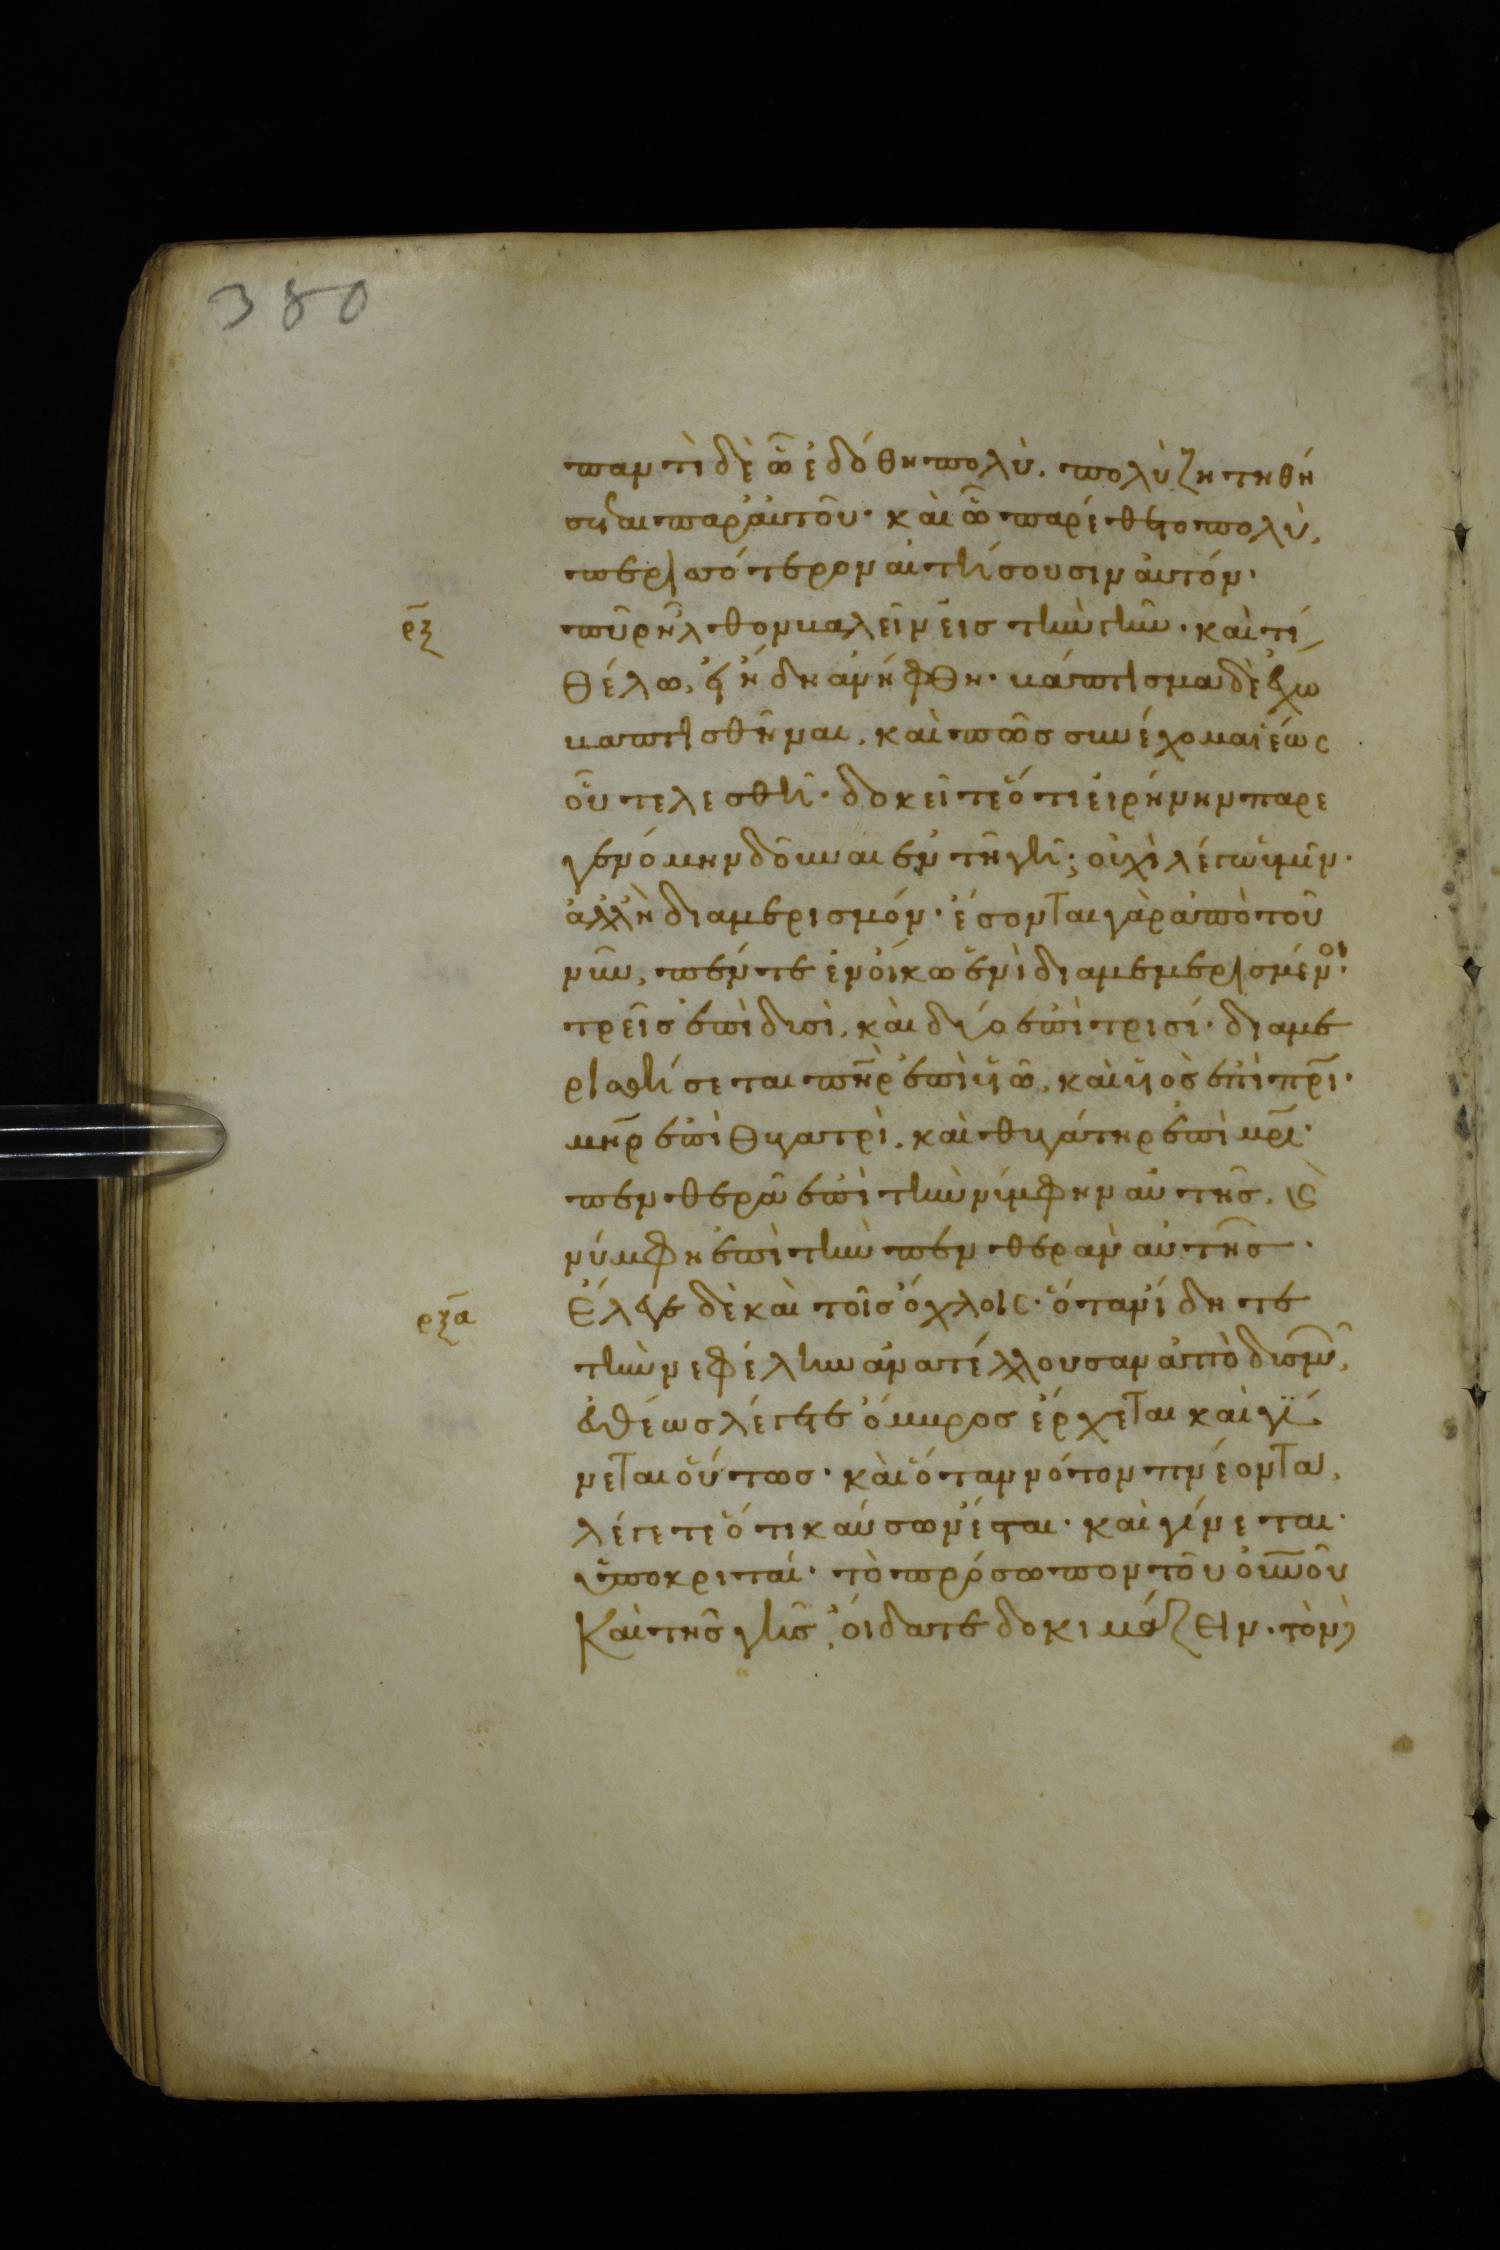 380
παντὶ δὲ ὧ ἐδόθη πολύ, πολὺ ζητηθή
σεται παρ' ἀυτοῦ· καὶ ὧ παρέθεντο πολὺ,
περισσότερον αἰτήσουσιν ἀυτόν·
ρξ
πῦρ ἦλθον βαλεῖν εἰς τὴν γῆν· καὶ τί
θέλω, εἰ ἤδη ἀνήφθη· βάπτισμα δὲ ἔχω
βαπτισθῆναι, καὶ πῶς συνέχομαι ἕως
οὗ τελεσθῆ· δοκεῖτε ὅτι εἰρήνην παρε
γενόμην δοῦναι ἐν τῆ γῆ; οὐχὶ λέγω ὑμῖν·
ἀλλ' ἢ διαμερισμόν· ἔσονται γὰρ ἀπὸ τοῦ
νῦν, πέντε ἐν οἴκω ἑνὶ διαμεμερισμένοι·
τρεῖς ἐπὶ δυσὶ, καὶ δύο ἐπὶ τρισί· διαμε
ρισθήσεται πηρ ἐπὶ υἱῶ, καὶ υἱὸς ἐπὶ πρι·
μηρ ἐπὶ θυγατρὶ, καὶ θυγάτηρ ἐπὶ μρι·
πενθερὰ ἐπὶ τὴν νύμφην αὐτῆς, καὶ
νύμφη ἐπὶ τὴν πενθερὰν αὐτῆς·
ρξα
Ἔλεγε δὲ καὶ τοῖς ὄχλοις· ὅταν ἴδητε
τὴν νεφέλην ἀνατέλλουσαν ἀπὸ δυσμῶν,
εὐθέως λέγετε ὄμβρος ἔρχεται καὶ γί
νεται οὕτως· καὶ ὅταν νότον πνέοντα,
λέγετε ὅτι καύσων ἔσται· καὶ γίνεται·
ὑποκριταί· τὸ πρόσωπον τοῦ οὐνοῦ
Καὶ τῆς γῆς, οἴδατε δοκιμάζειν· τὸν